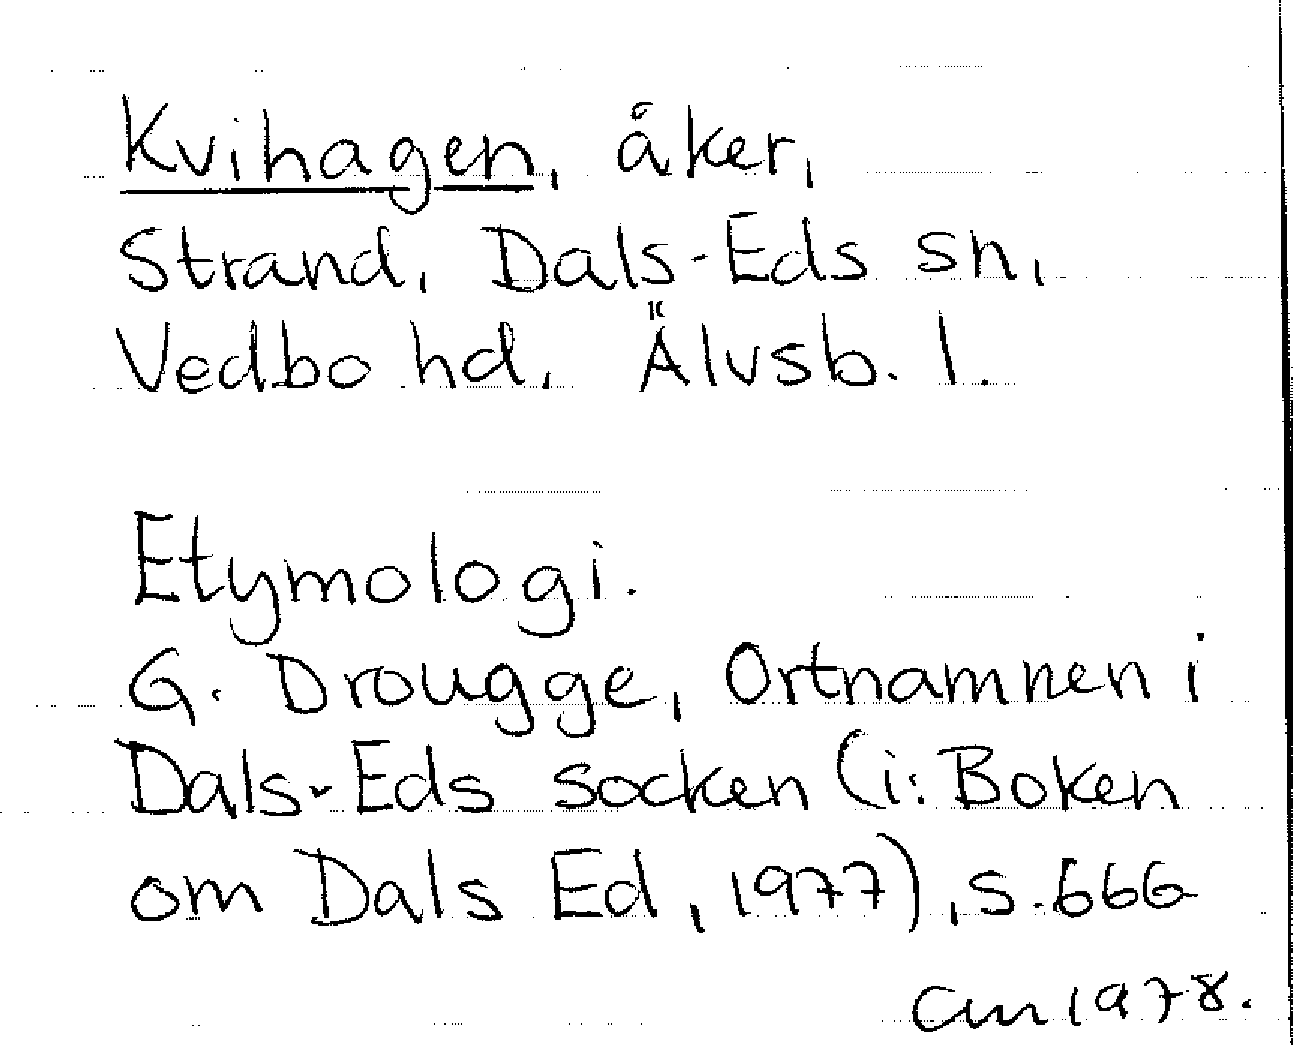 Kvihagen, åker,
Strand, Dals-Eds sn,
Vedbo hd, Älvsb. l.
Etymologi.
G. Drougge, Ortnamnen i
Dals-Eds socken (i: Boken
om Dals Ed, 1977), s. 666
CM 1978.